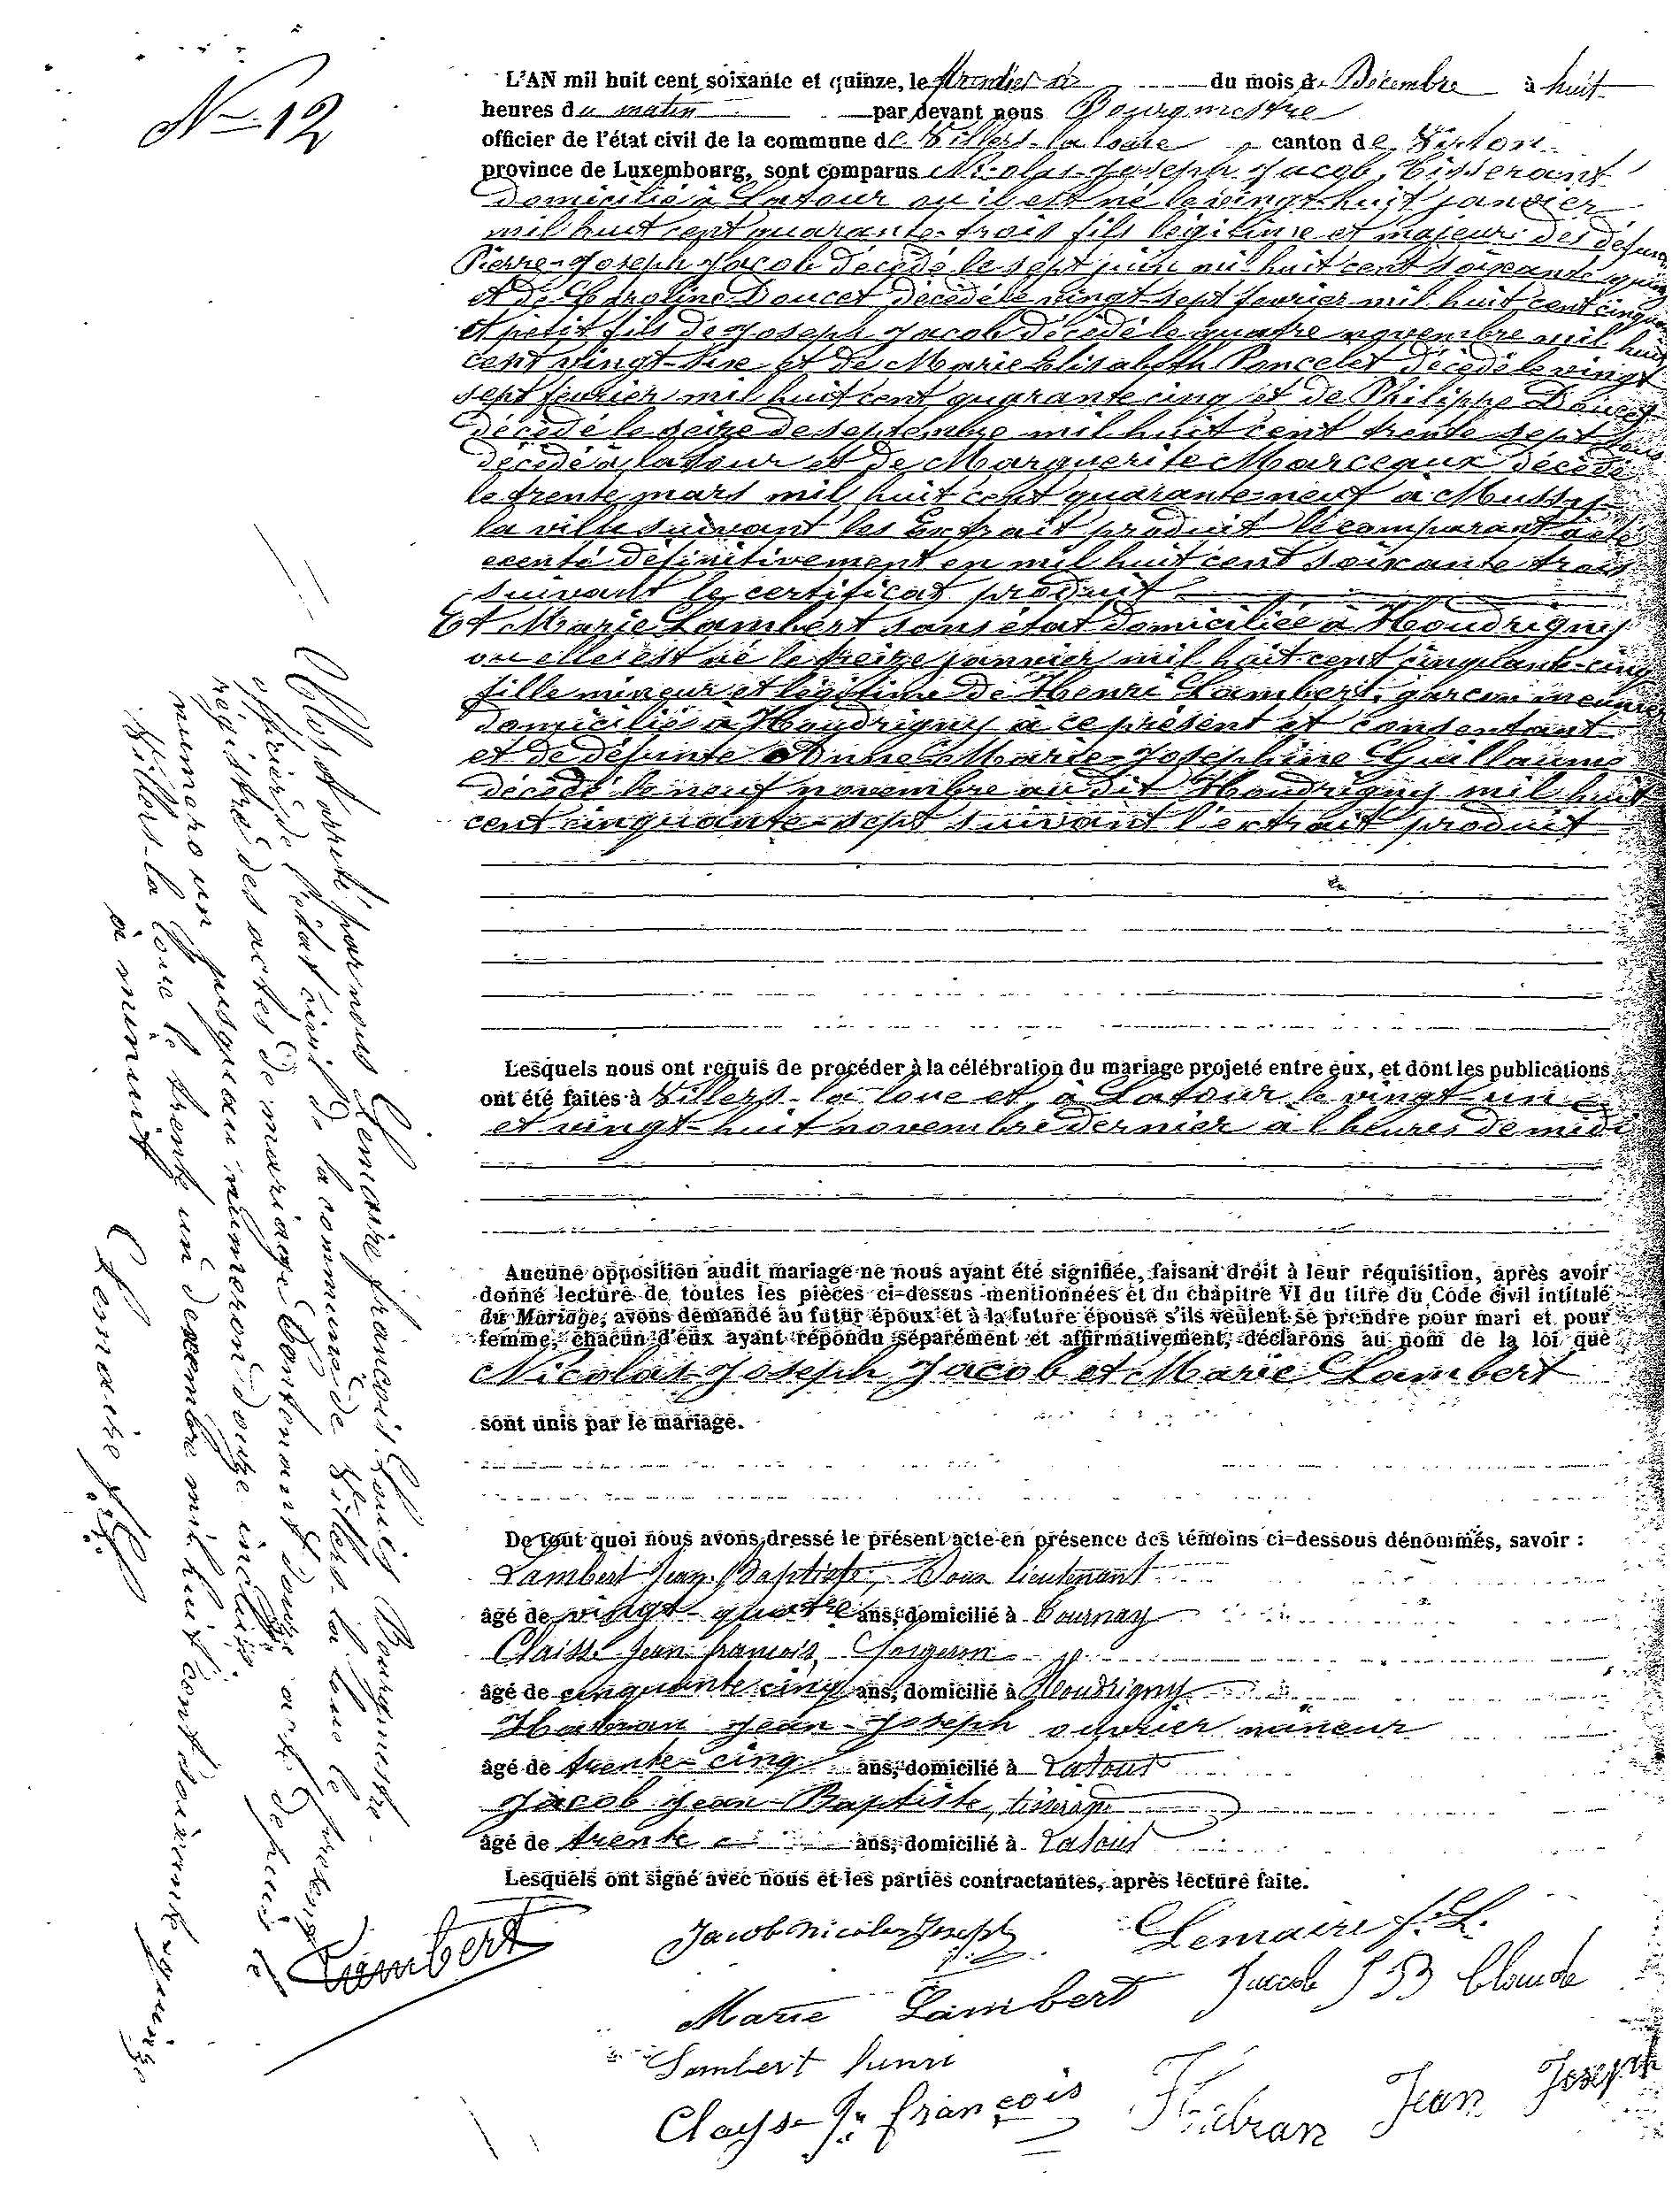 N° 12
L'AN mil huit cent soixante et quinze, le du mois de Décembre à huit
heures du matin par devant nous Bourgmestre
officier de l'état civil de la commune de Villers-la-loue canton de Virton
province de Luxembourg, sont comparus Nicolas-Joseph Jacob, Tisserant
domicilié à Latour ou il est né le vingt-huit janvier
mil huit cent quarante-trois fils légitime et majeur des défunts
Pierre-Joseph Jacob décédé le sept juin mil huit cent soixante
et de Caroline Doucet décédé le vingt sept fevrier mil huit cent
et petit fils de Joseph Jacob décédé le quatre novembre mil huit
cent vingt-six et de Marie Elisabeth Poncelet décédé le vingt
sept fevrier mil huit cent quarante cinq et de Philippe Doucet
décédé le seize de septembre mil huit cent trente sept tous
décédé à latour et de Marguerite Marceaux décédé
le trente mars mil huit cent quarante-neuf à Mussy-
la ville suivant les Extrait produit le comparant a été
exenté définitivement en mil huit cent soixante trois
suivant le certificat produit
Et Marie Lambert sans état domiciliée à Houdrigny
ou elle est né le treize janvier mil huit cent cinquante-cinq
fille mineur et légitime de Henri Lambert, garçon meunier
domicilié à Houdrigny à ce présent et consentant
et de défunte Anne-Marie-Josephine Guillaume
décédé le neuf novembre au dit Houdrigny mil huit
cent cinquante-sept suivant l'extrait produit
Lesquels nous ont requis de procéder à la célébration du mariage projeté entre eux, et dont les publications
ont été faites à Villers-la-loue et à Latour le vingt-un
et vingt-huit novembre dernier à l'heures de midi
Aucune opposition audit mariage ne nous ayant été signifiée, faisant droit à leur réquisition, après avoir
donné lecture de toutes les pièces ci-dessus mentionnées et du chapitre VI du titre du Code civil intitulé
du Mariage, avons demandé au futur époux et à la future épouse s'ils veulent se prendre pour mari et pour
femme, chacun d'eux ayant répondu séparément et affirmativement, déclarons au nom de la loi que
Nicolas-Joseph Jacob et Marie Lambert
sont unis par le mariage.
De tout quoi nous avons dressé le présent acte en présence des témoins ci-dessous dénommés, savoir :
Lambert Jean-Baptiste, Sous lieutenant
âgé de vingt-quatre ans, domicilié à Tournay
Claisse Jean francois, forgeron
âgé de cinquante cinq ans, domicilié à Houdrigny
Habran Jean-Joseph ouvrier mineur
âgé de trente-cinq ans, domicilié à Latour
Jacob Jean-Baptiste, tisserant
âgé de trente ans, domicilié à Latour
Lesquels ont signé avec nous et les parties contractantes, après lecture faite.
Lambert
Jacob Nicolas Joseph
Lemaire f. L.
Marie Lambert
Jacob J B Claude
Lambert henri
Claysse Jn françois
Habran Jean Joseph
Clos et arrêté par nous Lemaire francois Louis Bourgmestre
officier de l'état civil de la commune de Villers-la-loue le présent
registre des actes de mariage contenant douze acte depuis le
numero un jusqu'au numeron douze inclus
Villers-la loue le trente un décembre mil huit cent soixante quinze
à minuit
Lemaire f. L.